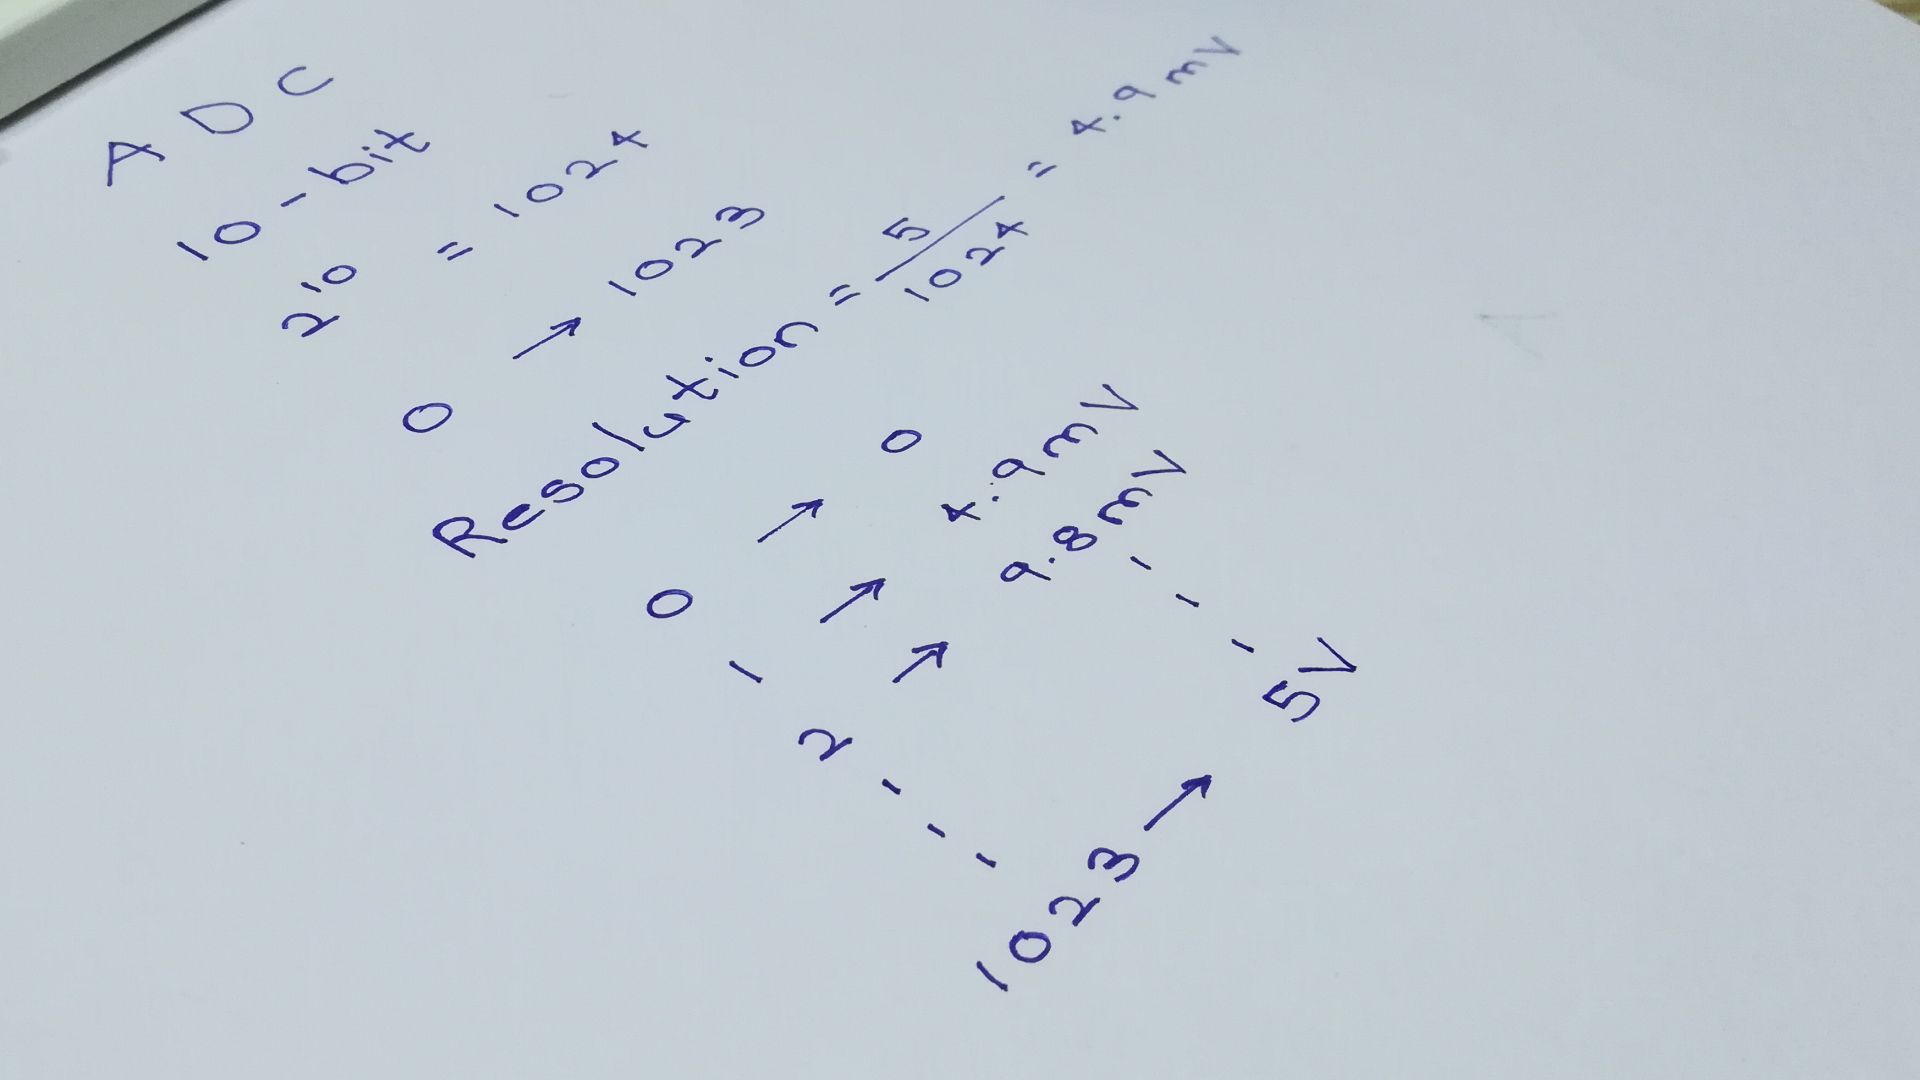 ADC
10-bit
2¹⁰ = 1024
0 → 1023
Resolution = 5/1024 = 4.9 mV
0 → 0
1 → 4.9mV
2 → 9.8mV
1023 → 5V